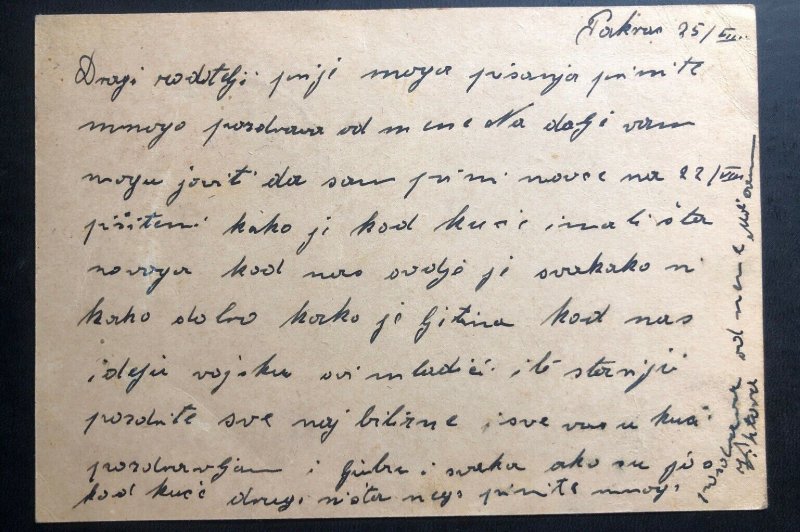 Pakrac 25/VIII.
Dragi roditelji prije moga pisanja primite
mnogo pozdrava od mene Na dalje vam
mogu javiti da sam primi novce na 22/VIII
pišitemi kako je kod kuće imali šta
novoga kod nas ovdje je svakako ni
kako dobro kako je ljetina kod nas
ideju vojsku svi mladići ili stariji
pozdrite sve naj bližne i sve vas u kući
pozdravljam i ljubi svaka ako su još
kod kuće drugi ništa nego primite mnogo
od mene